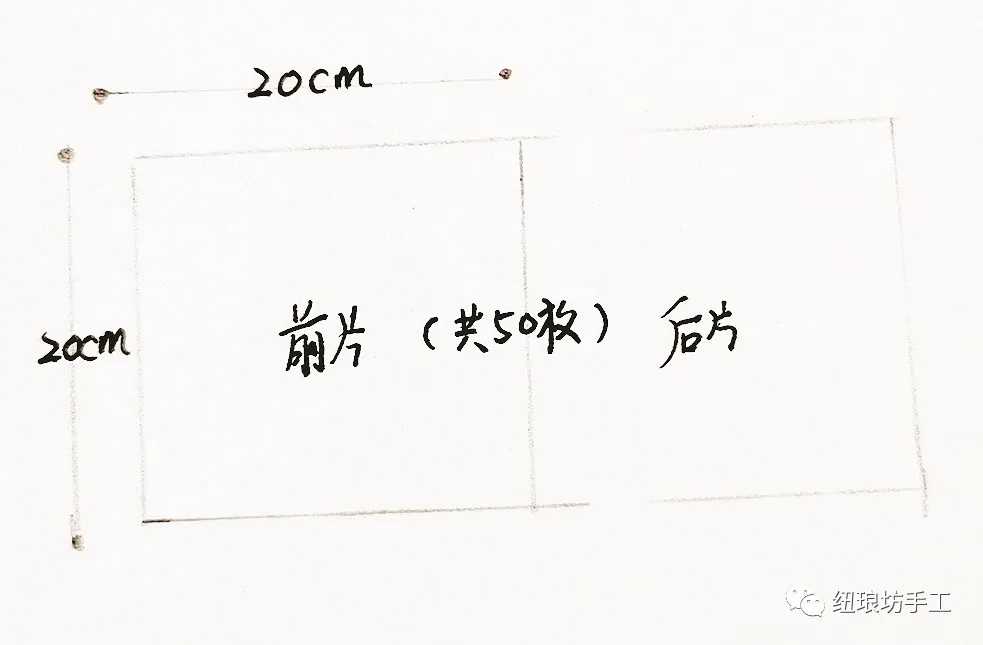 20cm
20cm
前片（共50枚）后片
纽琅坊手工